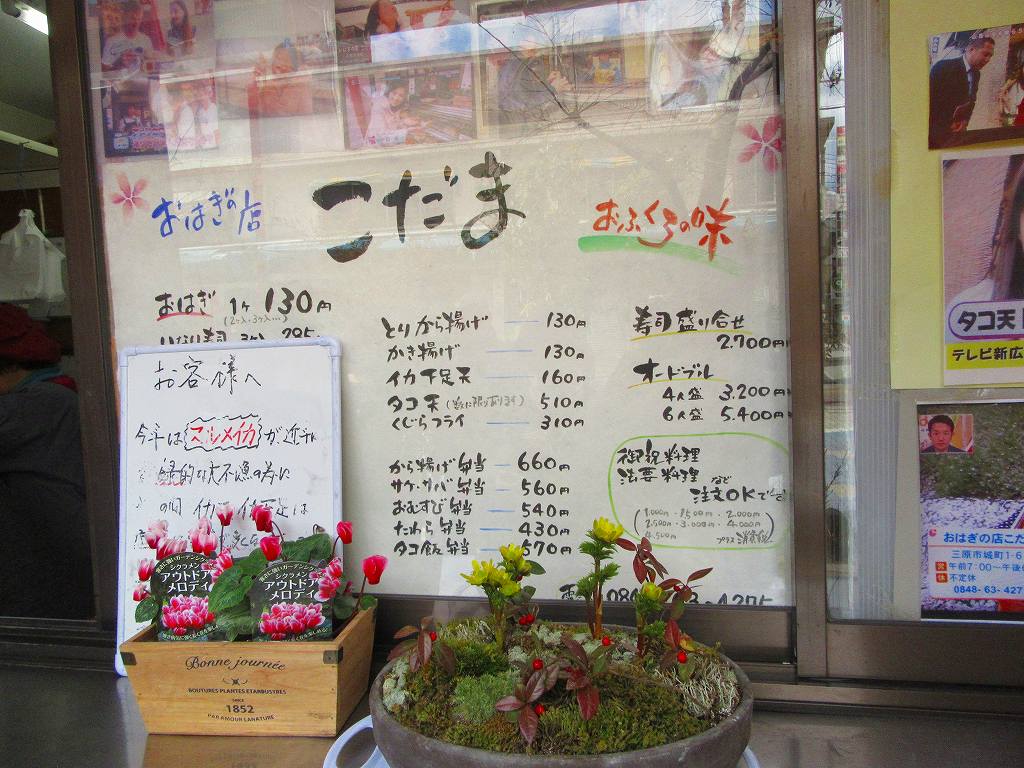 おはぎの店
こだま
おふくろの味
おはぎ 1ヶ 130円
いなり寿司 3ヶ
とりから揚げ 130円
かき揚げ 130円
イカ下足天 160円
タコ天(数に限りあります) 510円
くじらフライ 310円
から揚げ弁当 660円
サケ・サバ弁当 560円
おむすび弁当 540円
たわら弁当 430円
タコ飯弁当 570円
寿司盛り合せ
2.700円
オードブル
4人盛 3.200円
6人盛 5.400円
御祝料理
法要料理 など
注文OKです
1.000円・1500円・2.000円
2.500円・3.000円・4.000円
4.500円 プラス消費税
お客様へ
今年はスルメイカが
大不漁の為に
イカ
シクラメン
アウトドア
メロディ
シクラメン
アウトドア
メロディ
Bonne journée
BOUTURES PLANTES ETARBUSTRES
SINCE
1852
PAR AMOUR LANATURE
タコ天
テレビ新広
おはぎの店こだ
三原市城町1-6
営 午前7:00〜午後
休 不定休
0848-63-427